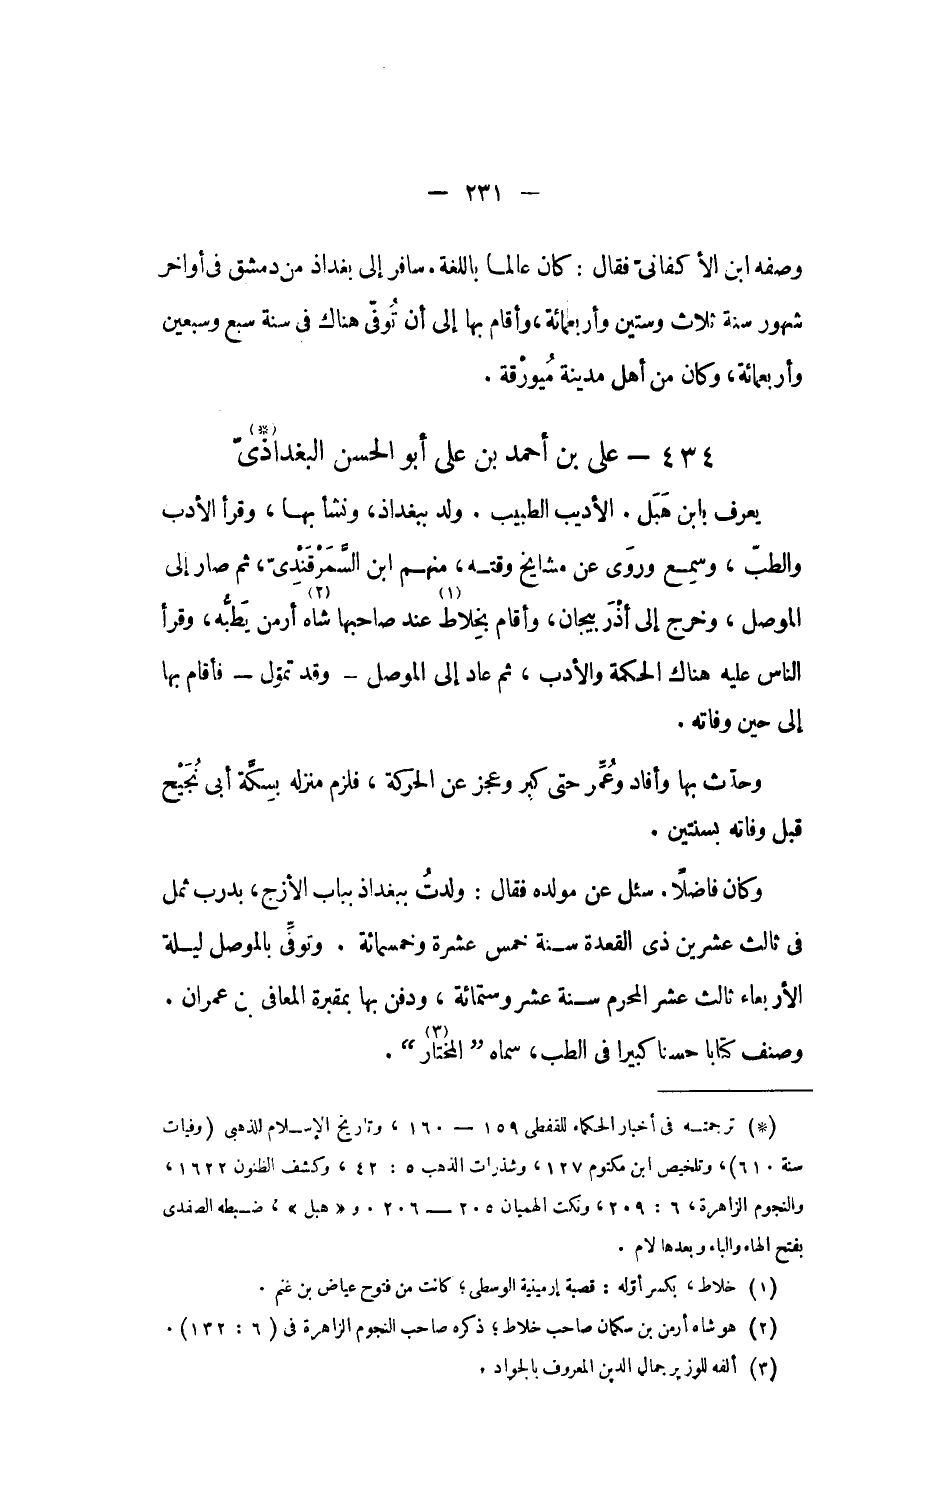 — ٢٣١ —
وصفه ابن الأكفانىّ فقال : كان عالما باللغة. سافر إلى بغداذ من دمشق فى أواخر
شهور سنة ثلاث وستين وأربعمائة، وأقام بها إلى أن تُوفّى هناك فى سنة سبع وسبعين
وأربعمائة، وكان من أهل مدينة مُيورْقة .
٤٣٤ — على بن أحمد بن على أبو الحسن البغداذىّ (*)
يعرف بابن هَبَل . الأديب الطبيب . ولد ببغداذ، ونشأ بها ، وقرأ الأدب
والطبّ ، وسمع وروَى عن مشايخ وقته ، منهم ابن السَّمَرْقَنْدِىّ، ثم صار إلى
الموصل ، وخرج إلى أذْرَبيجان، وأقام بخِلاط (١) عند صاحبها شاه أرمن (٢) يَطُبُّه، وقرأ
الناس عليه هناك الحكمة والأدب ، ثم عاد إلى الموصل — وقد تموّل — فأقام بها
إلى حين وفاته .
وحدّث بها وأفاد وعُمِّر حتى كبر وعجز عن الحركة ، فلزم منزله بسِكَّة أبى نُجَيْح
قبل وفاته بسنتين .
وكان فاضلًا. سئل عن مولده فقال : ولدتُ ببغداذ بباب الأزج، بدرب ثمل
فى ثالث عشرين ذى القعدة سنة خمس عشرة وخمسمائة . وتوفِّى بالموصل ليلة
الأربعاء ثالث عشر المحرم سنة عشر وستمائة ، ودفن بها بمقبرة المعافى بن عمران .
وصنف كتابا حسنا كبيرا فى الطب، سماه ” المختار “ (٣) .
(*) ترجمته فى أخبار الحكماء للقفطى ١٥٩ — ١٦٠ ، وتاريخ الإسلام للذهبى (وفيات
سنة ٦١٠)، وتلخيص ابن مكتوم ١٢٧، وشذرات الذهب ٥ : ٤٢ ، وكشف الظنون ١٦٢٢،
والنجوم الزاهرة، ٦ : ٢٠٩، ونكت الهميان ٢٠٥ — ٢٠٦ . و« هبل » ، ضبطه الصفدى
بفتح الهاء والباء وبعدها لام .
(١) خلاط ، بكسر أوّله : قصبة إرمينية الوسطى؛ كانت من فتوح عياض بن غنم .
(٢) هو شاه أرمن بن سكمان صاحب خلاط؛ ذكره صاحب النجوم الزاهرة فى (٦ : ١٣٢) .
(٣) ألفه للوزير جمال الدين المعروف بالجواد .